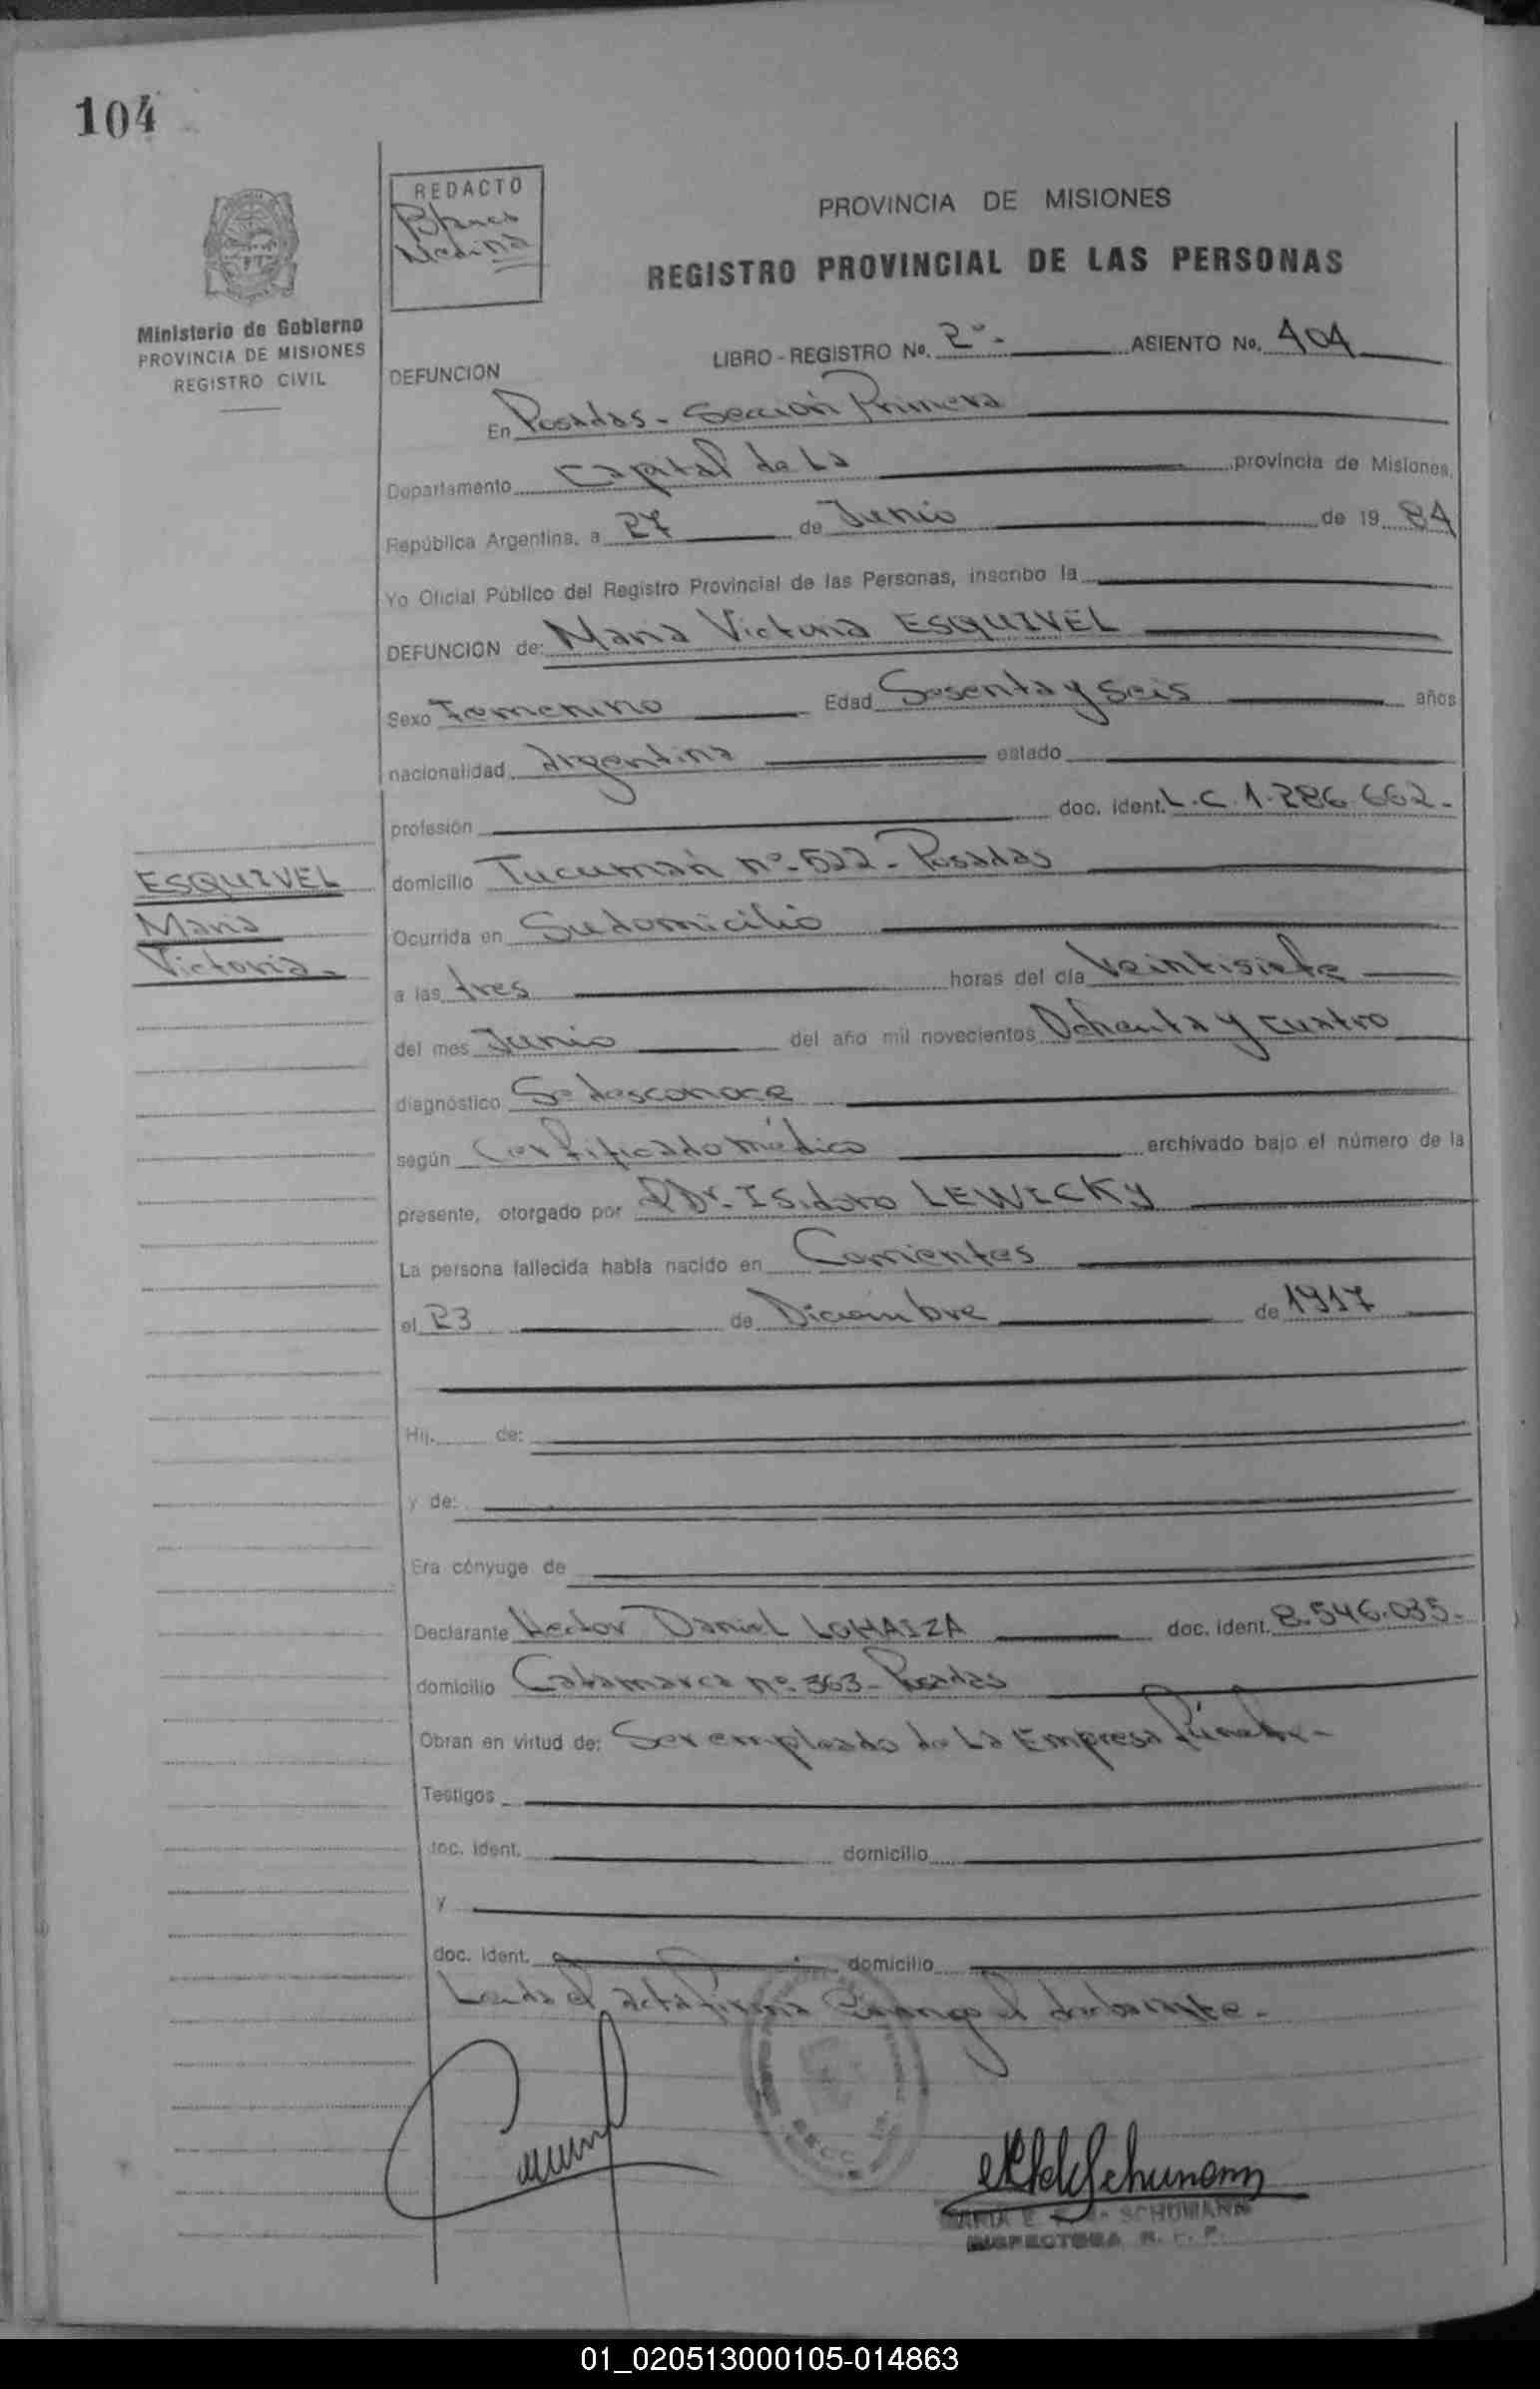 104
REDACTO
Blanca
Medina
PROVINCIA DE MISIONES
REGISTRO PROVINCIAL DE LAS PERSONAS
Ministerio de Gobierno
PROVINCIA DE MISIONES
REGISTRO CIVIL
LIBRO - REGISTRO No. 2º - ASIENTO No. 404
DEFUNCION
En Posadas - Sección Primera
Departamento Capital de La provincia de Misiones,
República Argentina, a 27 de Junio de 19 84
Yo Oficial Público del Registro Provincial de las Personas, inscribo la
DEFUNCION de: Maria Victoria ESQUIVEL
Sexo Femenino Edad Sesenta y Seis años
nacionalidad argentina estado
profesión doc. ident. L.C. 1.286.662.-
ESQUIVEL
Maria
Victoria.-
domicilio Tucumán nº- 522 - Posadas
Ocurrida en Su domicilio
a las tres horas del día Veintisiete
del mes Junio del año mil novecientos Ochenta y cuatro
diagnóstico Se desconoce
según Certificado médico archivado bajo el número de la
presente, otorgado por Dr. Isidoro LEWICKY
La persona fallecida había nacido en Corrientes
el 23 de Diciembre de 1917
Hij. de:
y de:
Era cónyuge de
Declarante Hector Daniel LOHAIZA doc. ident. 8.546.035.-
domicilio Catamarca nº- 363 - Posadas
Obran en virtud de: Ser empleado de La Empresa fúnebre -
Testigos
doc. ident. domicilio
y
doc. ident. domicilio
Leida el acta firma Conmigo el declarante.-
SCHUMANN
INSPECTORA R. P. P.
01_020513000105-014863